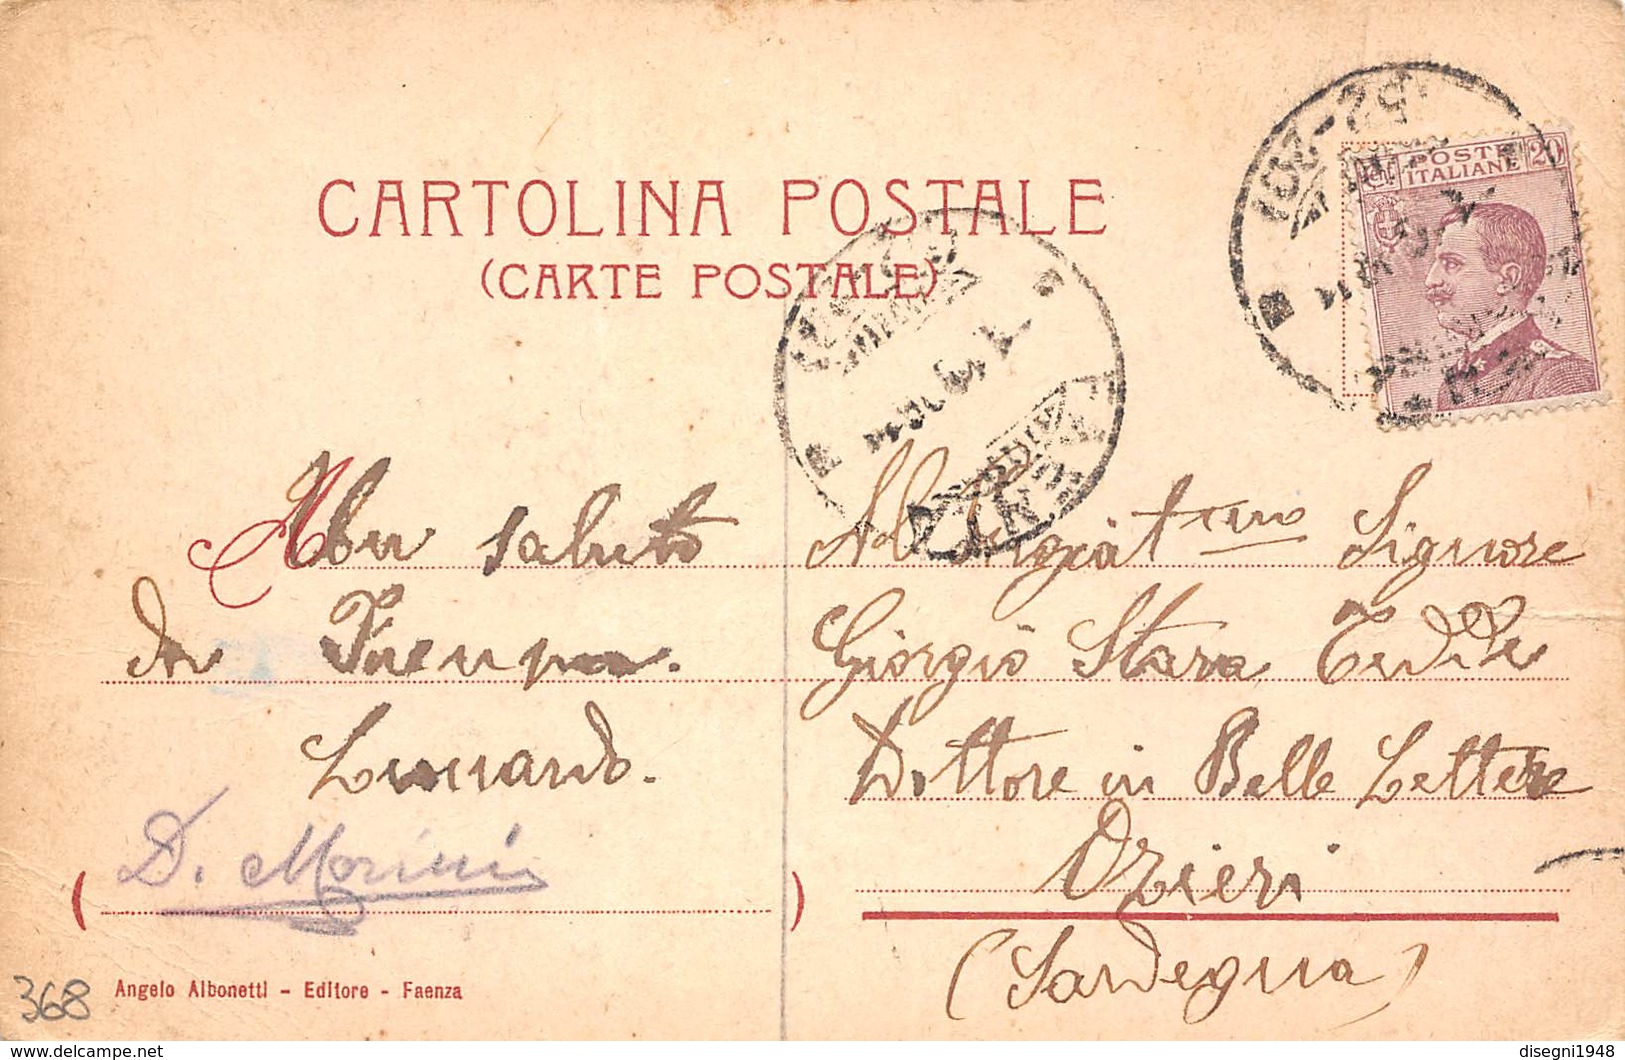 CARTOLINA POSTALE
(CARTE POSTALE)
POSTE
ITALIANE
20
152-201
saluto
da Faenza.
Leonardo.
D. Morini
Al Pregiat Signore
Giorgio Stara Tedde
Dottore in Belle Lettere
Ozieri
(Sardegna)
Angelo Albonetti - Editore - Faenza
368
delcampe.net
disegni1948